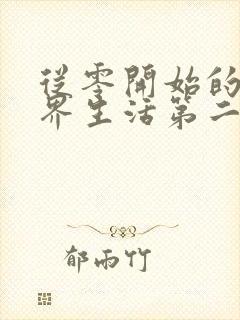 從零開始的
界生活第二
郁雨竹